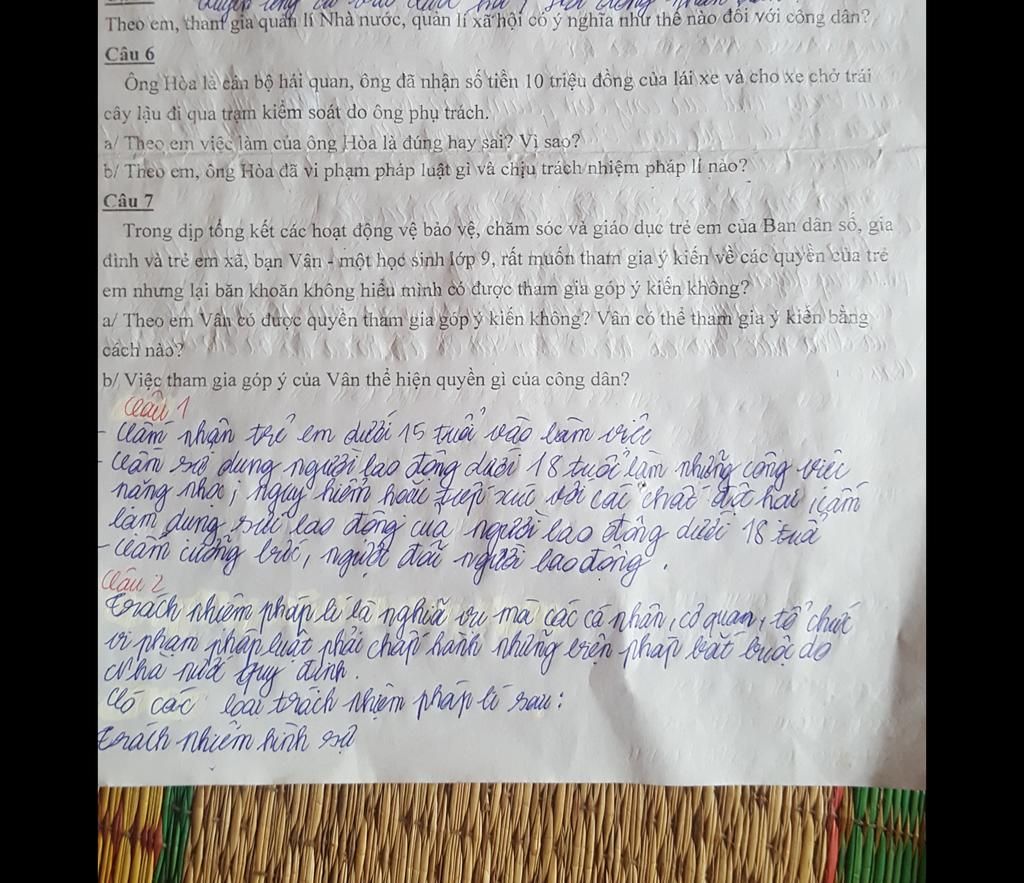 Theo em, tham gia quản lí Nhà nước, quản lí xã hội có ý nghĩa như thế nào đối với công dân?
Câu 6
Ông Hòa là cán bộ hải quan, ông đã nhận số tiền 10 triệu đồng của lái xe và cho xe chở trái
cây lậu đi qua trạm kiểm soát do ông phụ trách.
a/ Theo em việc làm của ông Hòa là đúng hay sai? Vì sao?
b/ Theo em, ông Hòa đã vi phạm pháp luật gì và chịu trách nhiệm pháp lí nào?
Câu 7
Trong dịp tổng kết các hoạt động vệ bảo vệ, chăm sóc và giáo dục trẻ em của Ban dân số, gia
đình và trẻ em xã, bạn Vân - một học sinh lớp 9, rất muốn tham gia ý kiến về các quyền của trẻ
em nhưng lại băn khoăn không hiểu mình có được tham gia góp ý kiến không?
a/ Theo em Vân có được quyền tham gia góp ý kiến không? Vân có thể tham gia ý kiến bằng
cách nào?
b/ Việc tham gia góp ý của Vân thể hiện quyền gì của công dân?
Câu 1
- Cấm nhận trẻ em dưới 15 tuổi vào làm việc
- Cấm sử dụng người lao động dưới 18 tuổi làm những công việc
nặng nhọc, nguy hiểm hoặc tiếp xúc với các chất độc hại, cấm
lạm dụng sức lao động của người lao động dưới 18 tuổi
- Cấm cưỡng bức, ngược đãi người lao động.
Câu 2
Trách nhiệm pháp lí là nghĩa vụ mà các cá nhân, cơ quan, tổ chức
vi phạm pháp luật phải chấp hành những biện pháp bắt buộc do
Nhà nước quy định.
Có các loại trách nhiệm pháp lí sau:
Trách nhiệm hình sự